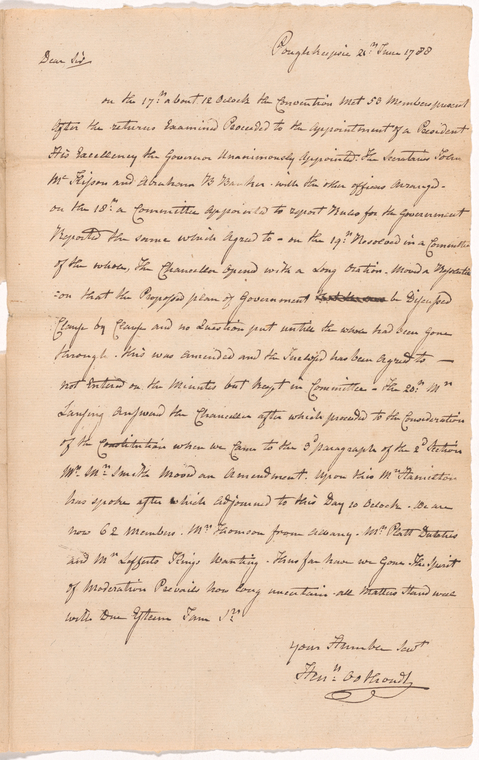 Poughkeepsie 21st June 1788
Dear Sir
on the 17th about 12 Oclock the Convention met 53 Members present
after the returns Examined Proceeded to the Appointment of a President
His Excellency the Governor Unanimously Appointed. the Secretaries John
Mc Kesson and Abraham B Bancker. with the other officers Arranged -
on the 18th a Committee Appointed to report Rules for the Government
Reported the same which Agreed to - on the 19th Resolved in a Committee
of the whole, the Chancellor opend with a Long Oration. Moved a Resolutio
=on that the Proposed plan of Government be Discussed
Clause by Clause and no Question put untill the whole had been gone
through. this was amended and the Inclosed has been Agreed to —
not Entered on the Minutes but Kept in Committee - the 20th Mr
Lansing answerd the Chancellor after which proceeded to the Consideration
of the Constitution when we Came to the 3d paragraph of the 2d Section
Mr. Mr. Smith Moovd an Amendment. Upon this Mr Hamilton
has spoke after which Adjorned to this Day 10 Oclock. We are
now 62 Members. Mr Thomson from Albany. Mr Platt Dutches
and Mr Lefferts Kings Wanting. thus far have we gone The Spirit
of Moderation Prevails how long uncertain. all Matters Stand well
with Due Esteem I am Sr
your Humble Servt
Henry Oothoudt